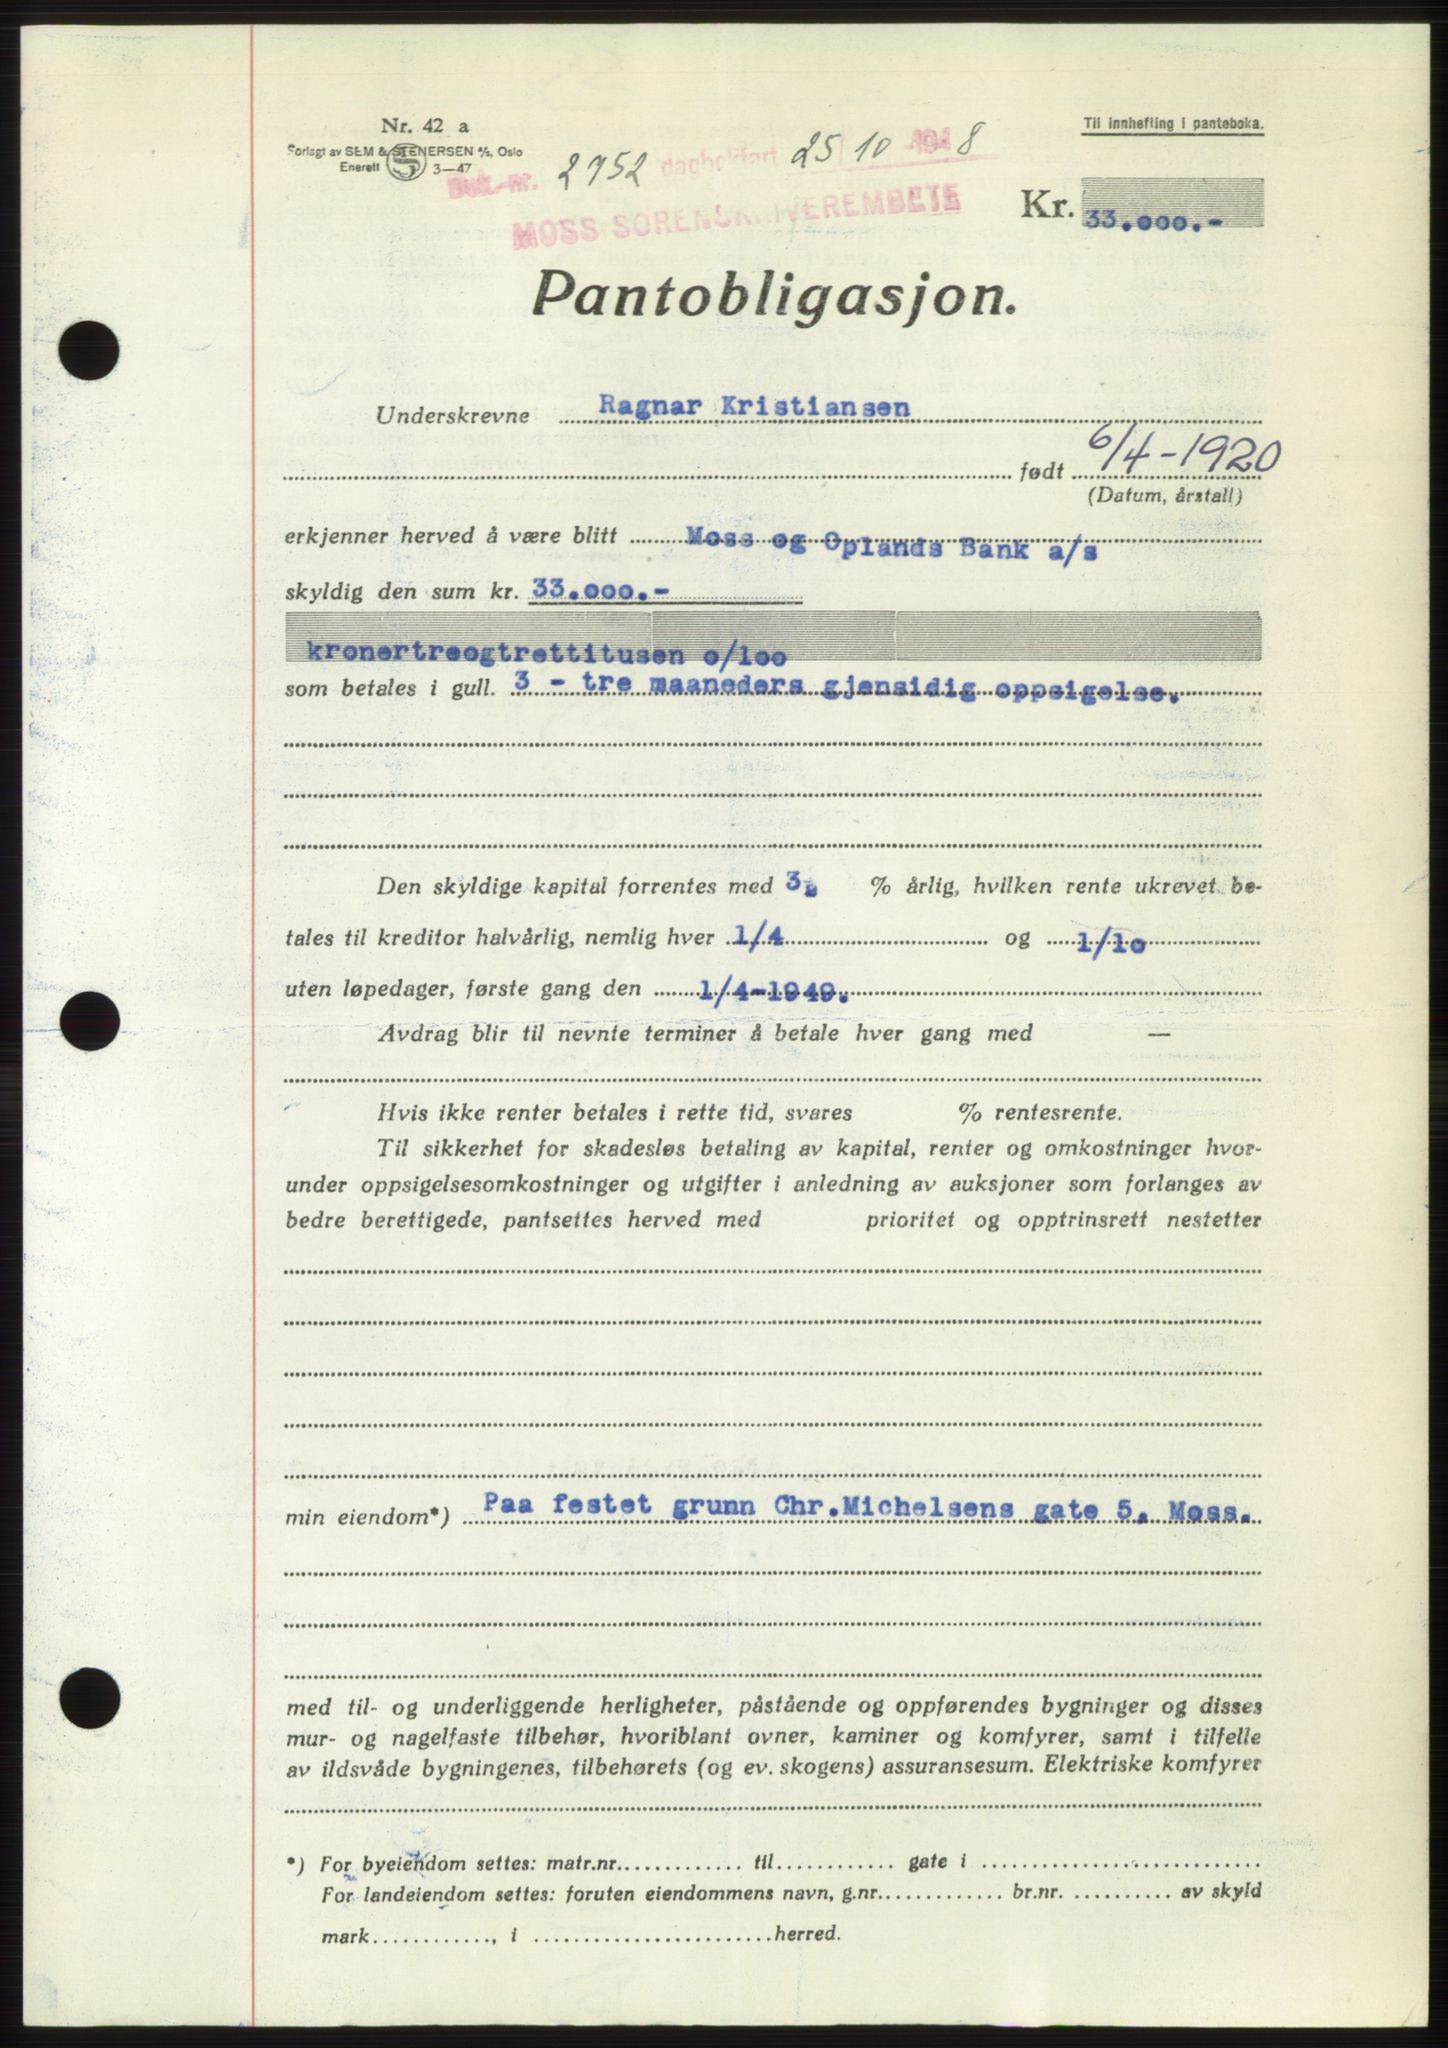 Nr. 42 a
Til innhefting i panteboka.
Forlagt av SEM & STENERSEN A/S, Oslo
Enerett S 3—47
Dok.-nr. 2752 dagbokført 25/10 1948
MOSS SORENSKRIVEREMBETE
Kr. 33.000.-
Pantobligasjon.
Underskrevne Ragnar Kristiansen
født 6/4-1920
(Datum, årstall)
erkjenner herved å være blitt Moss og Oplands Bank a/s
skyldig den sum kr. 33.000.-
kronertreogtrettitusen o/loo
som betales i gull. 3 - tre maaneders gjensidig oppsigelse.
Den skyldige kapital forrentes med 3 % årlig, hvilken rente ukrevet be-
tales til kreditor halvårlig, nemlig hver 1/4 og 1/lo
uten løpedager, første gang den 1/4-1949.
Avdrag blir til nevnte terminer å betale hver gang med —
Hvis ikke renter betales i rette tid, svares % rentesrente.
Til sikkerhet for skadesløs betaling av kapital, renter og omkostninger hvor-
under oppsigelsesomkostninger og utgifter i anledning av auksjoner som forlanges av
bedre berettigede, pantsettes herved med prioritet og opptrinsrett nestetter
min eiendom*) Paa festet grunn Chr.Michelsens gate 5. Moss.
med til- og underliggende herligheter, påstående og oppførendes bygninger og disses
mur- og nagelfaste tilbehør, hvoriblant ovner, kaminer og komfyrer, samt i tilfelle
av ildsvåde bygningenes, tilbehørets (og ev. skogens) assuransesum. Elektriske komfyrer
*) For byeiendom settes: matr.nr. til gate i
For landeiendom settes: foruten eiendommens navn, g.nr. br.nr. av skyld
mark , i herred.